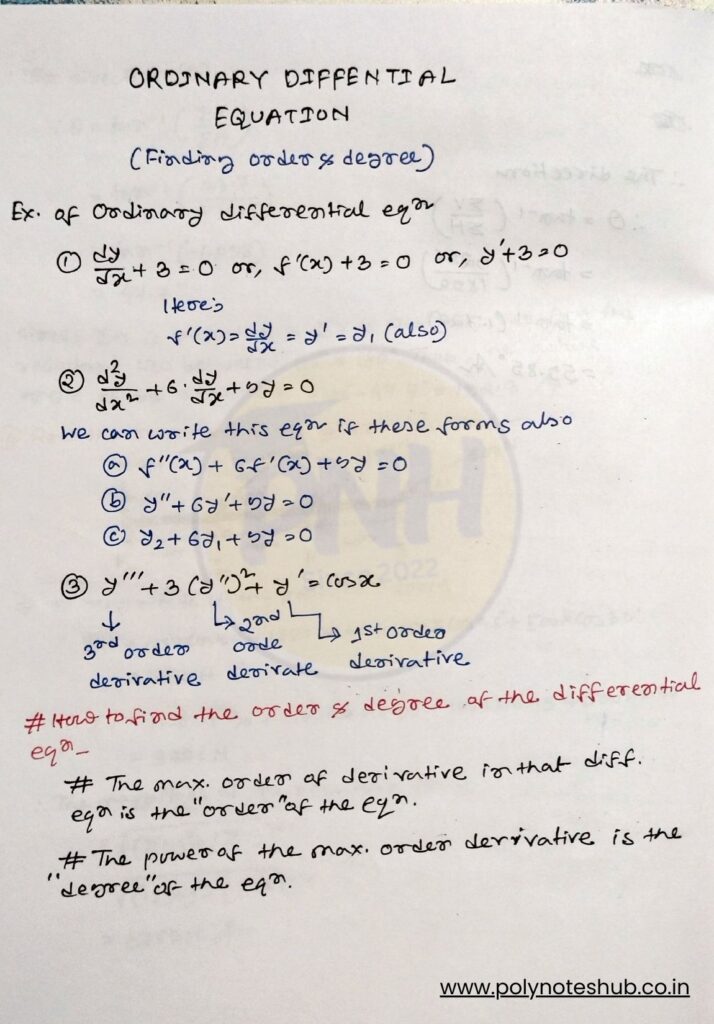 ORDINARY DIFFENTIAL
EQUATION
(Finding order & degree)
Ex. of Ordinary differential eqn
① dy/dx + 3 = 0 or, f'(x) + 3 = 0 or, y' + 3 = 0
Here,
f'(x) = dy/dx = y' = y₁ (also)
② d²y/dx² + 6 · dy/dx + 5y = 0
We can write this eqn if these forms also
ⓐ f''(x) + 6f'(x) + 5y = 0
ⓑ y'' + 6y' + 5y = 0
ⓒ y₂ + 6y₁ + 5y = 0
③ y''' + 3 (y'')² + y' = cosx
↓ ↳ 2nd ↳ 1st order
3rd order orde derivative
derivative derivate
# How to find the order & degree of the differential
eqn-
# The max. order of derivative in that diff.
eqn is the "order" of the eqn.
# The power of the max. order derivative is the
"degree" of the eqn.
PNH
2022
www.polynoteshub.co.in